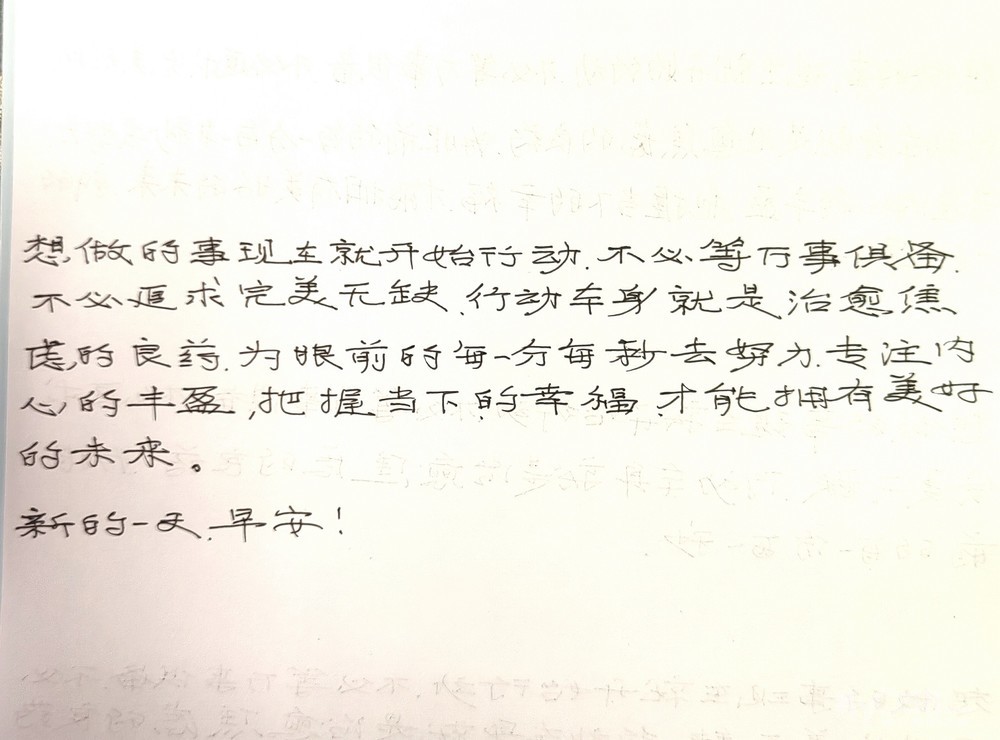 想做的事现在就开始行动.不必等万事俱备.
不必追求完美无缺.行动本身就是治愈焦
虑的良药.为眼前的每一分每秒去努力.专注内
心的丰盈,把握当下的幸福.才能拥有美好
的未来。
新的一天.早安!